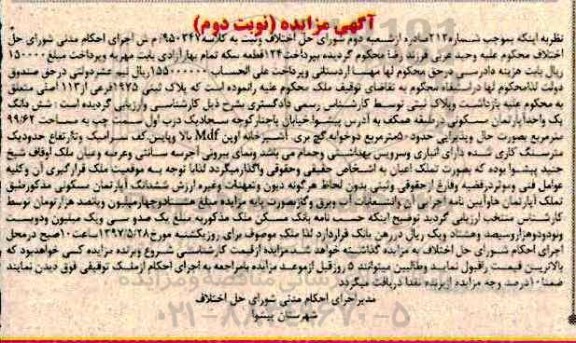 آگهی مزایده (نوبت دوم)
نظر به اینکه بموجب شماره ۲۱۲صادره ازشعبه دوم شورای حل اختلاف وثبت به کلاسه ۹۵۰۲۴۷/ م ش اجرای احکام مدنی شورای حل
اختلاف محکوم علیه وحید عربی فرزند رضا محکوم گردیده بپرداخت۱۲۴قطعه سکه تمام بهارآزادی بابت مهریه وپرداخت مبلغ ۱۵۰۰۰۰
ریال بابت هزینه دادرسی درحق محکوم لها مهسا اردستانی وپرداخت علی الحساب ۱۵۵۰۰۰۰۰ریال نیم عشردولتی درحق صندوق
دولت لذامحکوم لها دراستیفاء محکوم به تقاضای توقیف ملک محکوم علیه رانموده است که پلاک ثبتی ۱۹۷۵فرعی از۱۱۳ اصلی متعلق
به محکوم علیه بازداشت وپلاک ثبتی توسط کارشناس رسمی دادگستری بشرح ذیل کارشناسی وارزیابی گردیده است : شش دانگ
یک واحدآپارتمان مسکونی درطبقه همکف به آدرس پیشوا خیابان پاچنارکوچه سجادیک درب اول سمت چپ به مساحت ۹۹/۶۲
مترمربع بصورت حال وپذیرایی حدود۵۰مترمربع دوخوابه.گچ بری آشپزخانه اوپن Mdf بالا وپایین.کف سرامیک وتاارتفاع حدودیک
مترسنگ کاری شده دارای انباری وسرویس بهداشتی وحمام می باشد ونمای بیرونی آجرسه سانتی وعرصه وعیان ملک اوقاف شیخ
جنید پیشوا بوده که بصورت تملک اعیان به اشخاص حقیقی وحقوقی واگذارمیگردد لذابا توجه بـه موقعیت ملک قرارگیری آن وکلیه
عوامل فنی وموثردرقضیه وفارغ ازحقوقی وثبتی بدون لحاظ هرگونه دیون وتعهدات وغیره ارزش ششدانگ آپارتمان مسکونی مذکورطبق
تملک آپارتمان هاوآیین نامه اجرایی آن وانشعابات آب وبرق وگازبصورت پایه مزایده مبلغ هشتادوچهارمیلیون وپانصد هزارتومان توسط
کارشناس منتخب ارزیابی گردید توضیح اینکه حسب نامه بانک مسکن ملک مذکوربه مبلغ یک صدو سی ویک میلیون ودویست
ونودودوهزاروسیصد وهشتاد ویک ریال دررهن بانک قراردارد لذا ملک موصوف برای روزیکشنبه مورخ۱۳۹۷/۵/۲۸ساعت۱۰صبح درمحل
اجرای احکام شورای حل اختلاف به مزایده گذاشته خواهد شد.مزایده ازقیمت کارشناسی شروع وبرنده مزایده کسی خواهدبود که
بالاترین قیمت راقبول نماید وطالبین میتوانند ۵ روزقبل ازموعد مزایده بامراجعه به اجرای احکام ازملک توقیفی فوق دیدن نمایند
ضمنا ۱۰درصد وجه مزایده ازبرنده نقدا دریافت میگردد
مدیراجرای احکام مدنی شورای حل اختلاف
شهرستان پیشوا